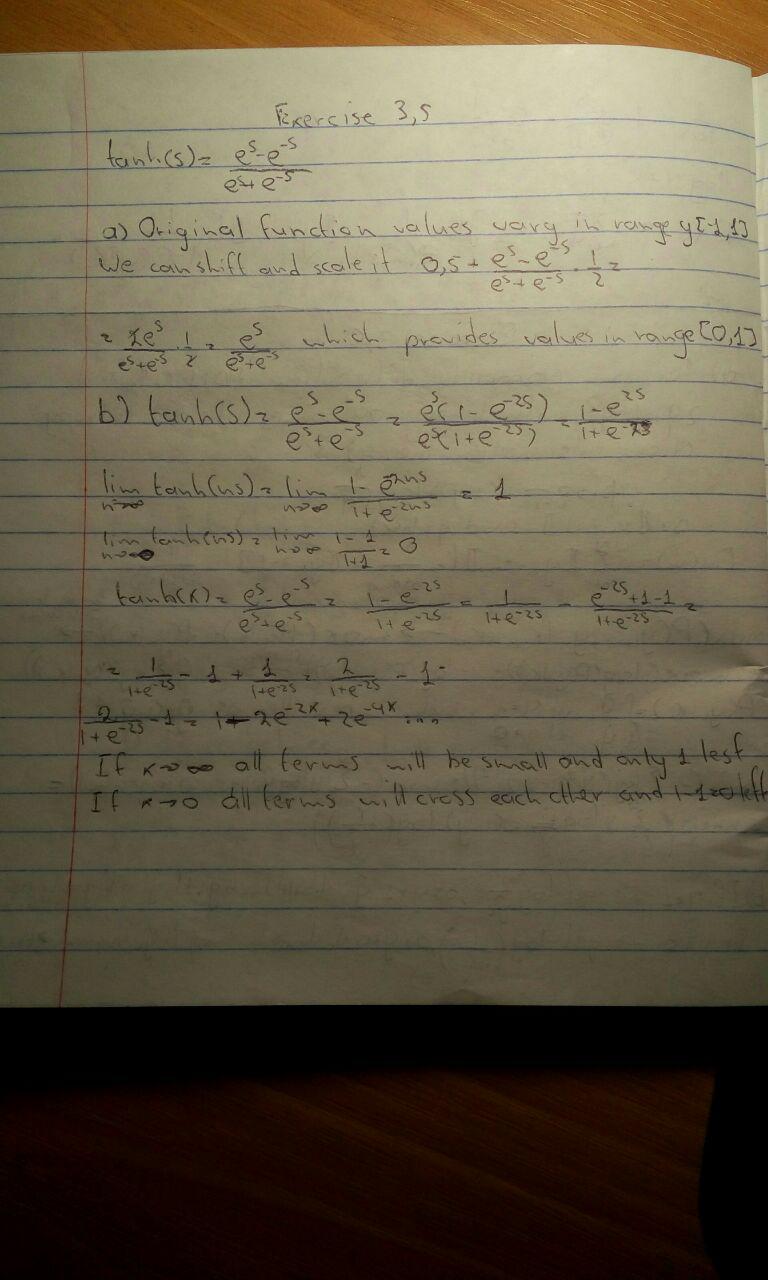 Exercise 3,5
tanh(s) = (e^s - e^-s)/(e^s + e^-s)
a) Original function values vary in range y[-1,1]
We can shift and scale it 0,5 + (e^s - e^-s)/(e^s + e^-s) · 1/2 =
= 2e^s/(e^s + e^-s) · 1/2 = e^s/(e^s + e^-s) which provides values in range [0,1]
b) tanh(s) = (e^s - e^-s)/(e^s + e^-s) = e^s(1 - e^-2s)/e^s(1 + e^-2s) = (1 - e^2s)/(1 + e^-2s)
lim n→∞ tanh(ns) = lim n→∞ (1 - e^-2ns)/(1 + e^-2ns) = 1
lim n→0 tanh(ns) = lim n→∞ (1 - 1)/(1 + 1) = 0
tanh(x) = (e^s - e^-s)/(e^s + e^-s) = (1 - e^-2s)/(1 + e^-2s) = 1/(1 + e^-2s) - (e^-2s + 1 - 1)/(1 + e^-2s) =
= 1/(1 + e^-2s) - 1 + 1/(1 + e^-2s) = 2/(1 + e^-2s) - 1
2/(1 + e^-2s) - 1 = 1 - 2e^-2x + 2e^-4x ...
If x→∞ all terms will be small and only 1 lest
If x→0 all terms will cross each other and 1-1=0 left